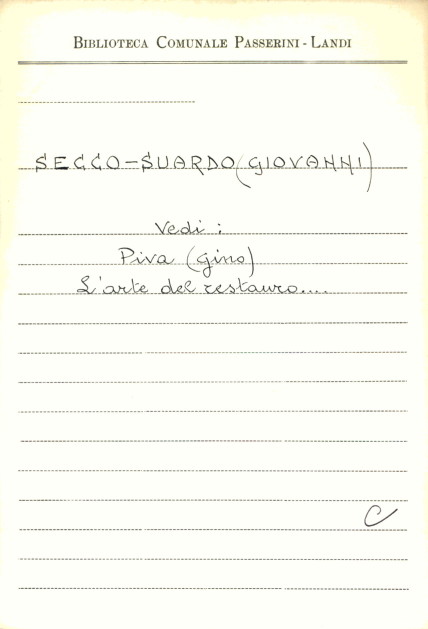 BIBLIOTECA COMUNALE PASSERINI - LANDI
SECCO-SUARDO (GIOVANNI)
Vedi :
Piva (Gino)
L'arte del restauro....
C